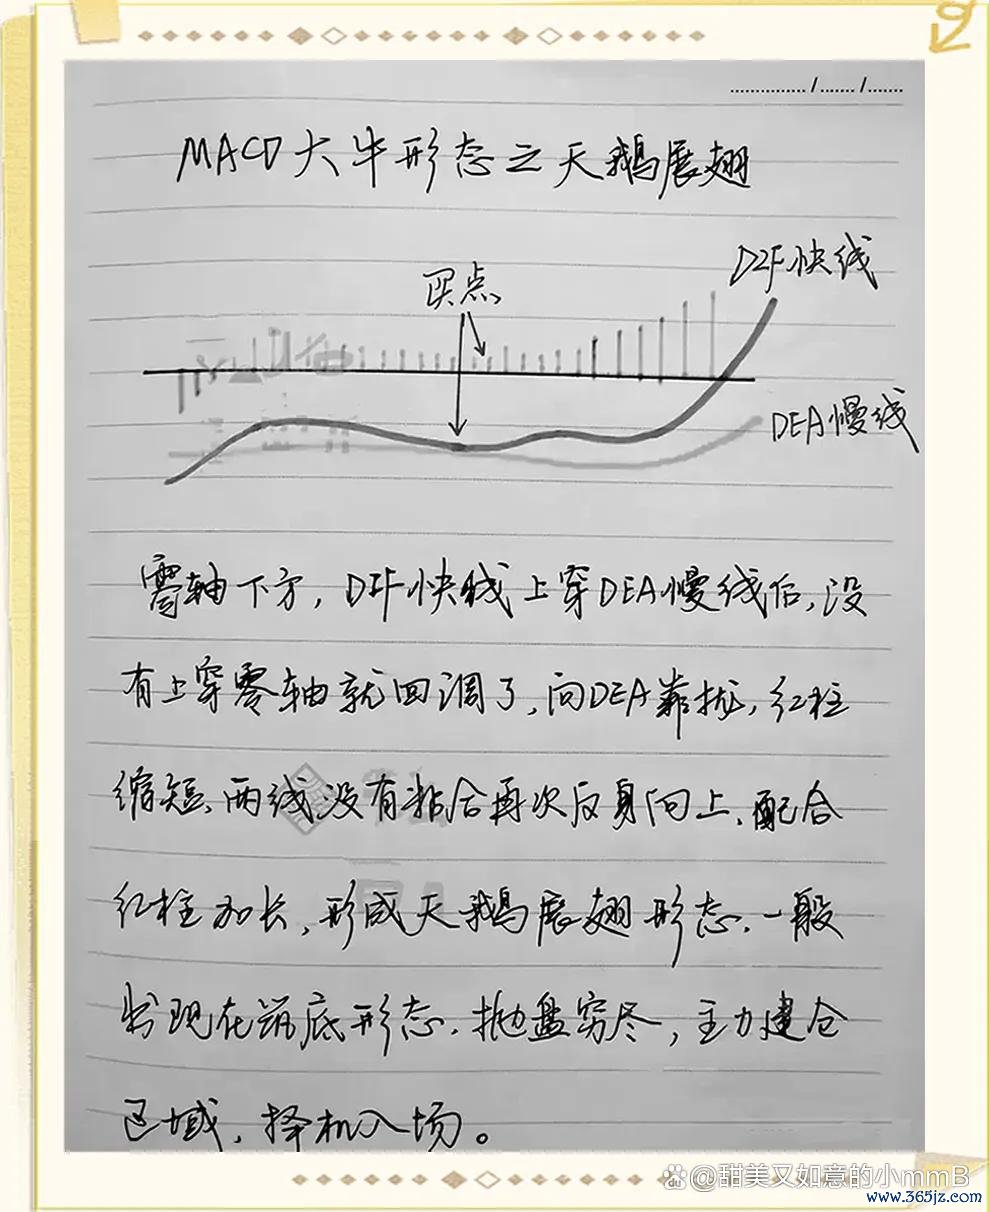 ............... / ....... / .......
MACD大牛形态之天鹅展翅
买点
DIF快线
DEA慢线
零轴下方，DIF快线上穿DEA慢线后，没
有上穿零轴就回调了，向DEA靠拢，红柱
缩短，两线没有粘合再次反身向上，配合
红柱加长，形成天鹅展翅形态。一般
出现在筑底形态，抛盘穷尽，主力建仓
区域，择机入场。
@甜美又如意的小mmB
www.365jz.com